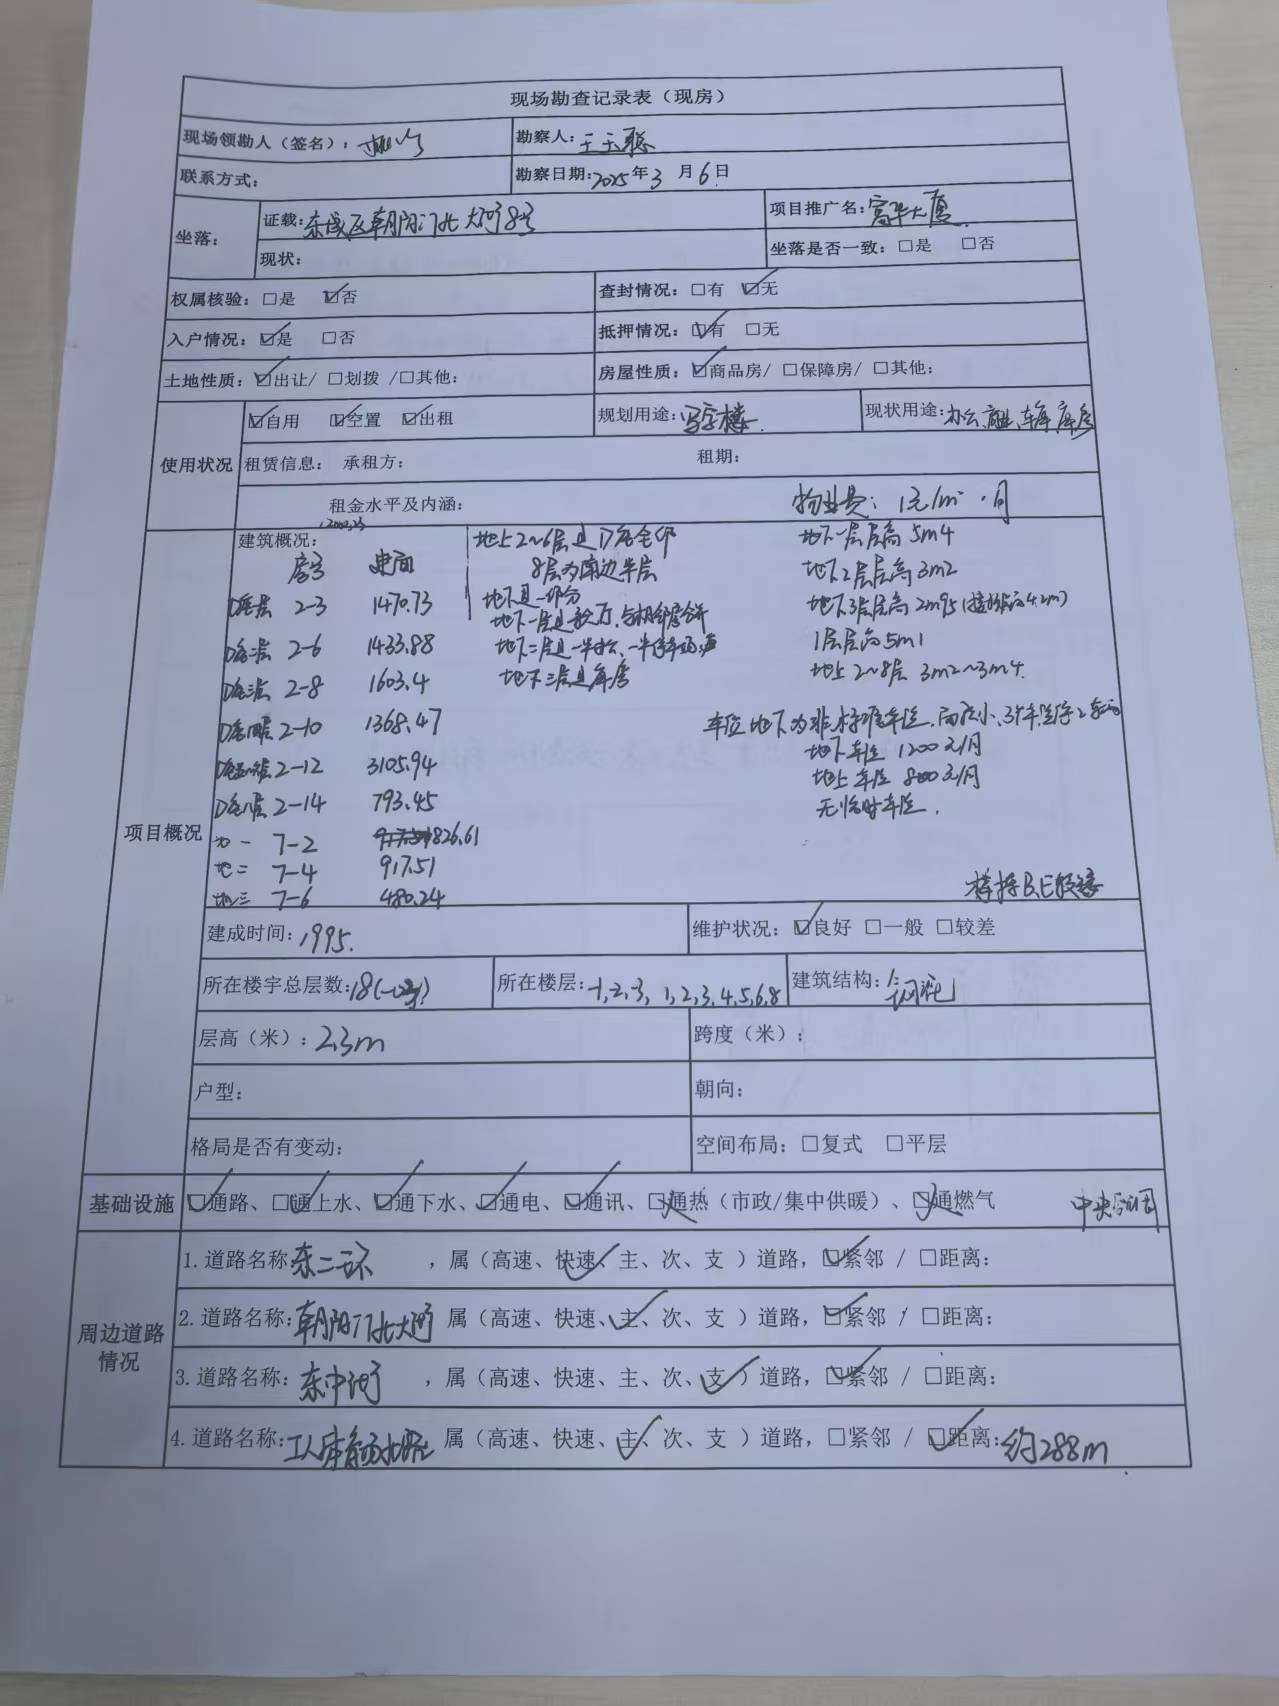 现场勘查记录表（现房）
现场领勘人（签名）： 勘察人：王玉聪
联系方式： 勘察日期：2025年3月6日
坐落： 证载：东城区朝阳门北大街8号 项目推广名：富华大厦
现状： 坐落是否一致：□是 □否
权属核验：□是 ☑否 查封情况：□有 ☑无
入户情况：☑是 □否 抵押情况：☑有 □无
土地性质：☑出让/ □划拨 /□其他： 房屋性质：☑商品房/ □保障房/ □其他：
使用状况 ☑自用 ☑空置 ☑出租 规划用途：写字楼 现状用途：办公、商业、车库、库房
租赁信息： 承租方： 租期：
租金水平及内涵： 物业费：1元/m²·月
项目概况 建筑概况：
房号 建面
D座一层 2-3 1470.73
D座二层 2-6 1433.88
D座三层 2-8 1603.4
D座四层 2-10 1368.47
D座五六层 2-12 3105.94
D座八层 2-14 793.45
地一 7-2 826.61
地二 7-4 917.51
地三 7-6 480.24
地上2~6层是D座全部
8层为南边半层
地下是一部分
地下一层是餐厅，与相邻层合并
地下三层是库房
地下一层层高 5m4
地下2层层高 3m2
地下3层层高 2m95
1层层高5m1
地上2~8层 3m2~3m4.
车位地下为非标准车位，面积小，3个车位停2车
地下车位 1200元/月
地上车位 800元/月
无临时车位.
建成时间：1995. 维护状况：☑良好 □一般 □较差
所在楼宇总层数：18 所在楼层：-1,-2,-3, 1,2,3,4,5,6,8 建筑结构：钢混
层高（米）：2.3m 跨度（米）：
户型： 朝向：
格局是否有变动： 空间布局：□复式 □平层
基础设施 ☑通路、☑通上水、☑通下水、☑通电、☑通讯、☒通热（市政/集中供暖）、☒通燃气 中央空调
周边道路情况 1.道路名称：东二环，属（高速、快速✓、主、次、支 ）道路，☑紧邻 / □距离：
2.道路名称：朝阳门北大街 属（高速、快速、主✓、次、支 ）道路，☑紧邻 / □距离：
3.道路名称：东中街，属（高速、快速、主、次、支✓）道路，☑紧邻 / □距离：
4.道路名称：工人体育场北路 属（高速、快速、主✓、次、支 ）道路，□紧邻 / ☑距离：约288m